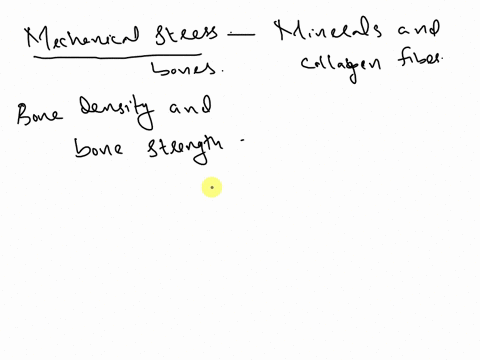 Mechanical stress — Minerals and
bones. collagen fiber.
Bone density and
bone strength.